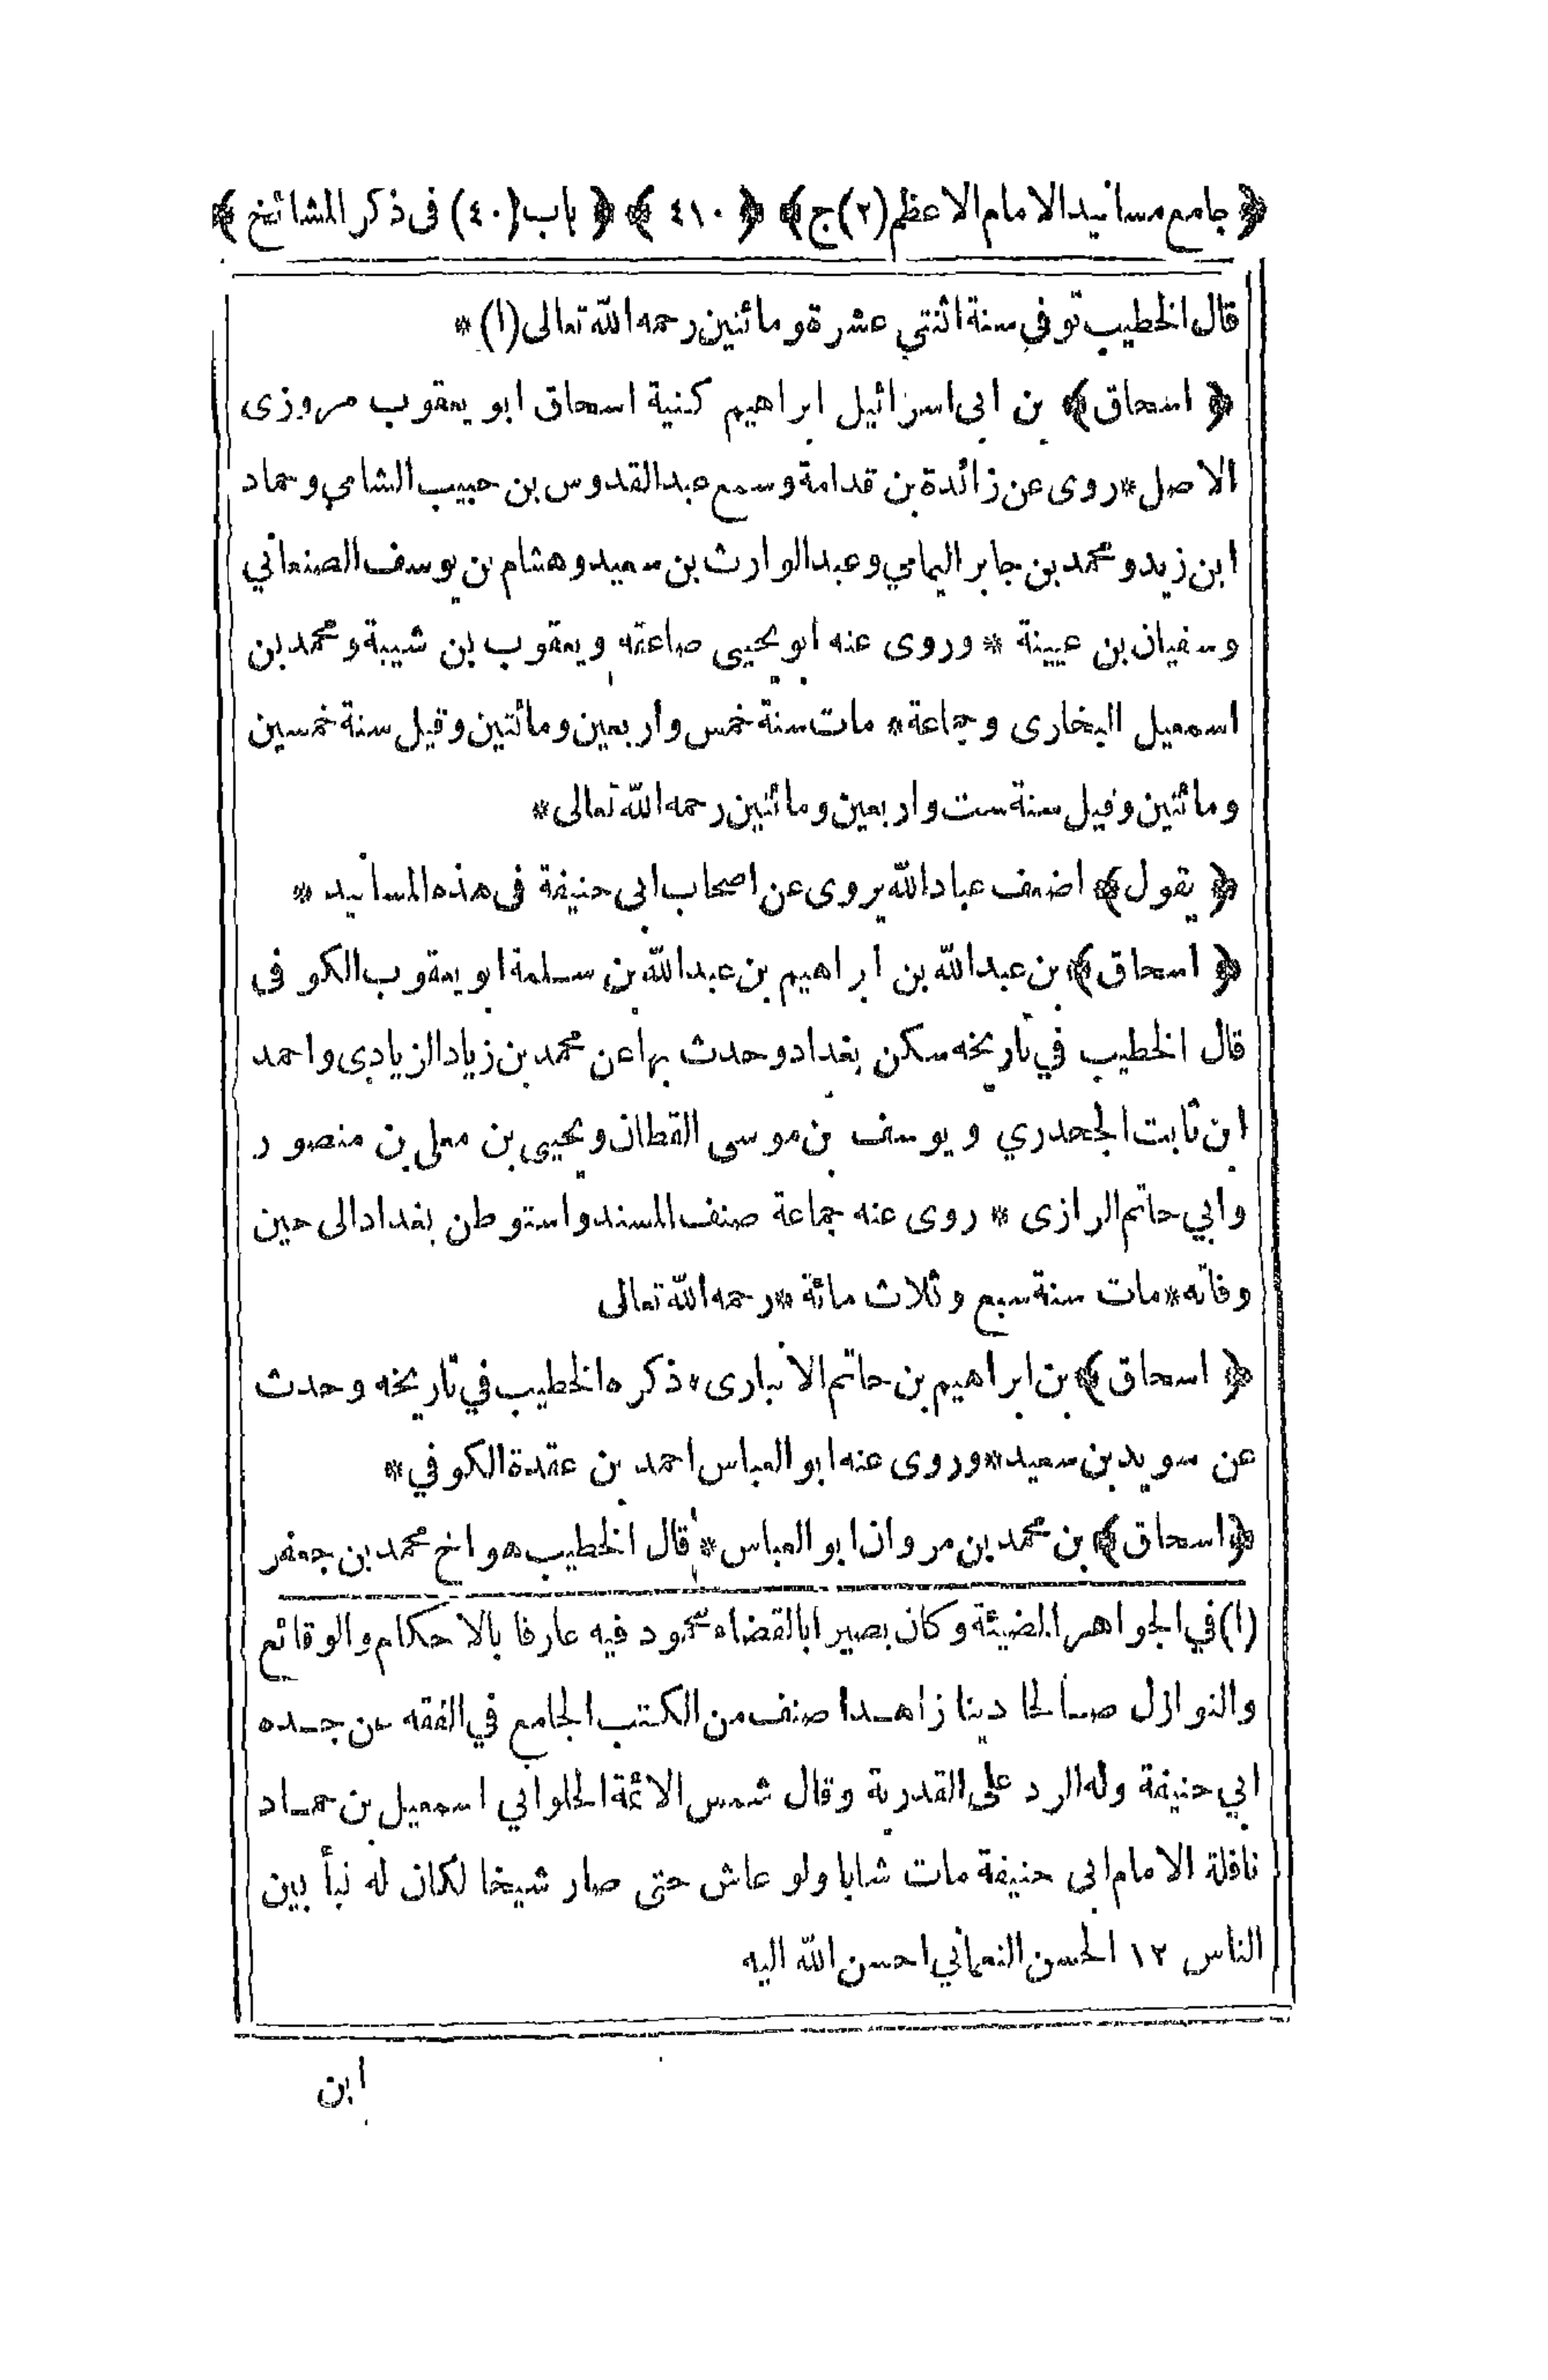 ﴿ جامع مسانيد الامام الاعظم (٢) ج ﴾ ﴿ ٤١٠ ﴾ ﴿ باب (٤٠) فى ذكر المشائخ ﴾
قال الخطيب توفي سنة اثنتي عشرة ومائتين رحمه الله تعالى (١) *
﴿ اسحاق ﴾ بن ابى اسرائيل ابراهيم كنية اسحاق ابو يعقوب مروزى
الاصل * روى عن زائدة بن قدامة وسمع عبد القدوس بن حبيب الشامي وحماد
ابن زيد ومحمد بن جابر اليمامي وعبد الوارث بن سعيد وهشام بن يوسف الصنعاني
وسفيان بن عيينة * وروى عنه ابو يحيى صاعقه ويعقوب بن شيبة ومحمد بن
اسمعيل البخارى وجماعة * مات سنة خمس واربعين ومائتين وقيل سنة خمسين
ومائتين وقيل سنة ست واربعين ومائتين رحمه الله تعالى *
﴿ يقول ﴾ اضعف عباد الله يروى عن اصحاب ابى حنيفة فى هذه المسانيد *
﴿ اسحاق ﴾ بن عبد الله بن ابراهيم بن عبد الله بن سلمة ابو يعقوب الكوفى
قال الخطيب في تاريخه سكن بغداد وحدث بها عن محمد بن زياد الزيادى واحمد
ابن ثابت الجحدري ويوسف بن موسى القطان ويحيى بن معلى بن منصور
وابي حاتم الرازى * روى عنه جماعة صنف المسند واستوطن بغداد الى حين
وفاته * مات سنة سبع وثلاث مائة * رحمه الله تعالى
﴿ اسحاق ﴾ بن ابراهيم بن حاتم الانبارى * ذكره الخطيب في تاريخه وحدث
عن سويد بن سعيد * وروى عنه ابو العباس احمد بن عقدة الكوفي *
﴿ اسحاق ﴾ بن محمد بن مروان ابو العباس * قال الخطيب هو اخ محمد بن جعفر
(١) في الجواهر المضيئة وكان بصيرا بالقضاء محمود فيه عارفا بالاحكام والوقائع
والنوازل صالحا دينا زاهدا صنف من الكتب الجامع في الفقه عن جده
ابي حنيفة وله الرد على القدرية وقال شمس الائمة الحلواني اسمعيل بن حماد
نافلة الامام ابى حنيفة مات شابا ولو عاش حتى صار شيخا لكان له نبأ بين
الناس ١٢ الحسن النعماني احسن الله اليه
ابن